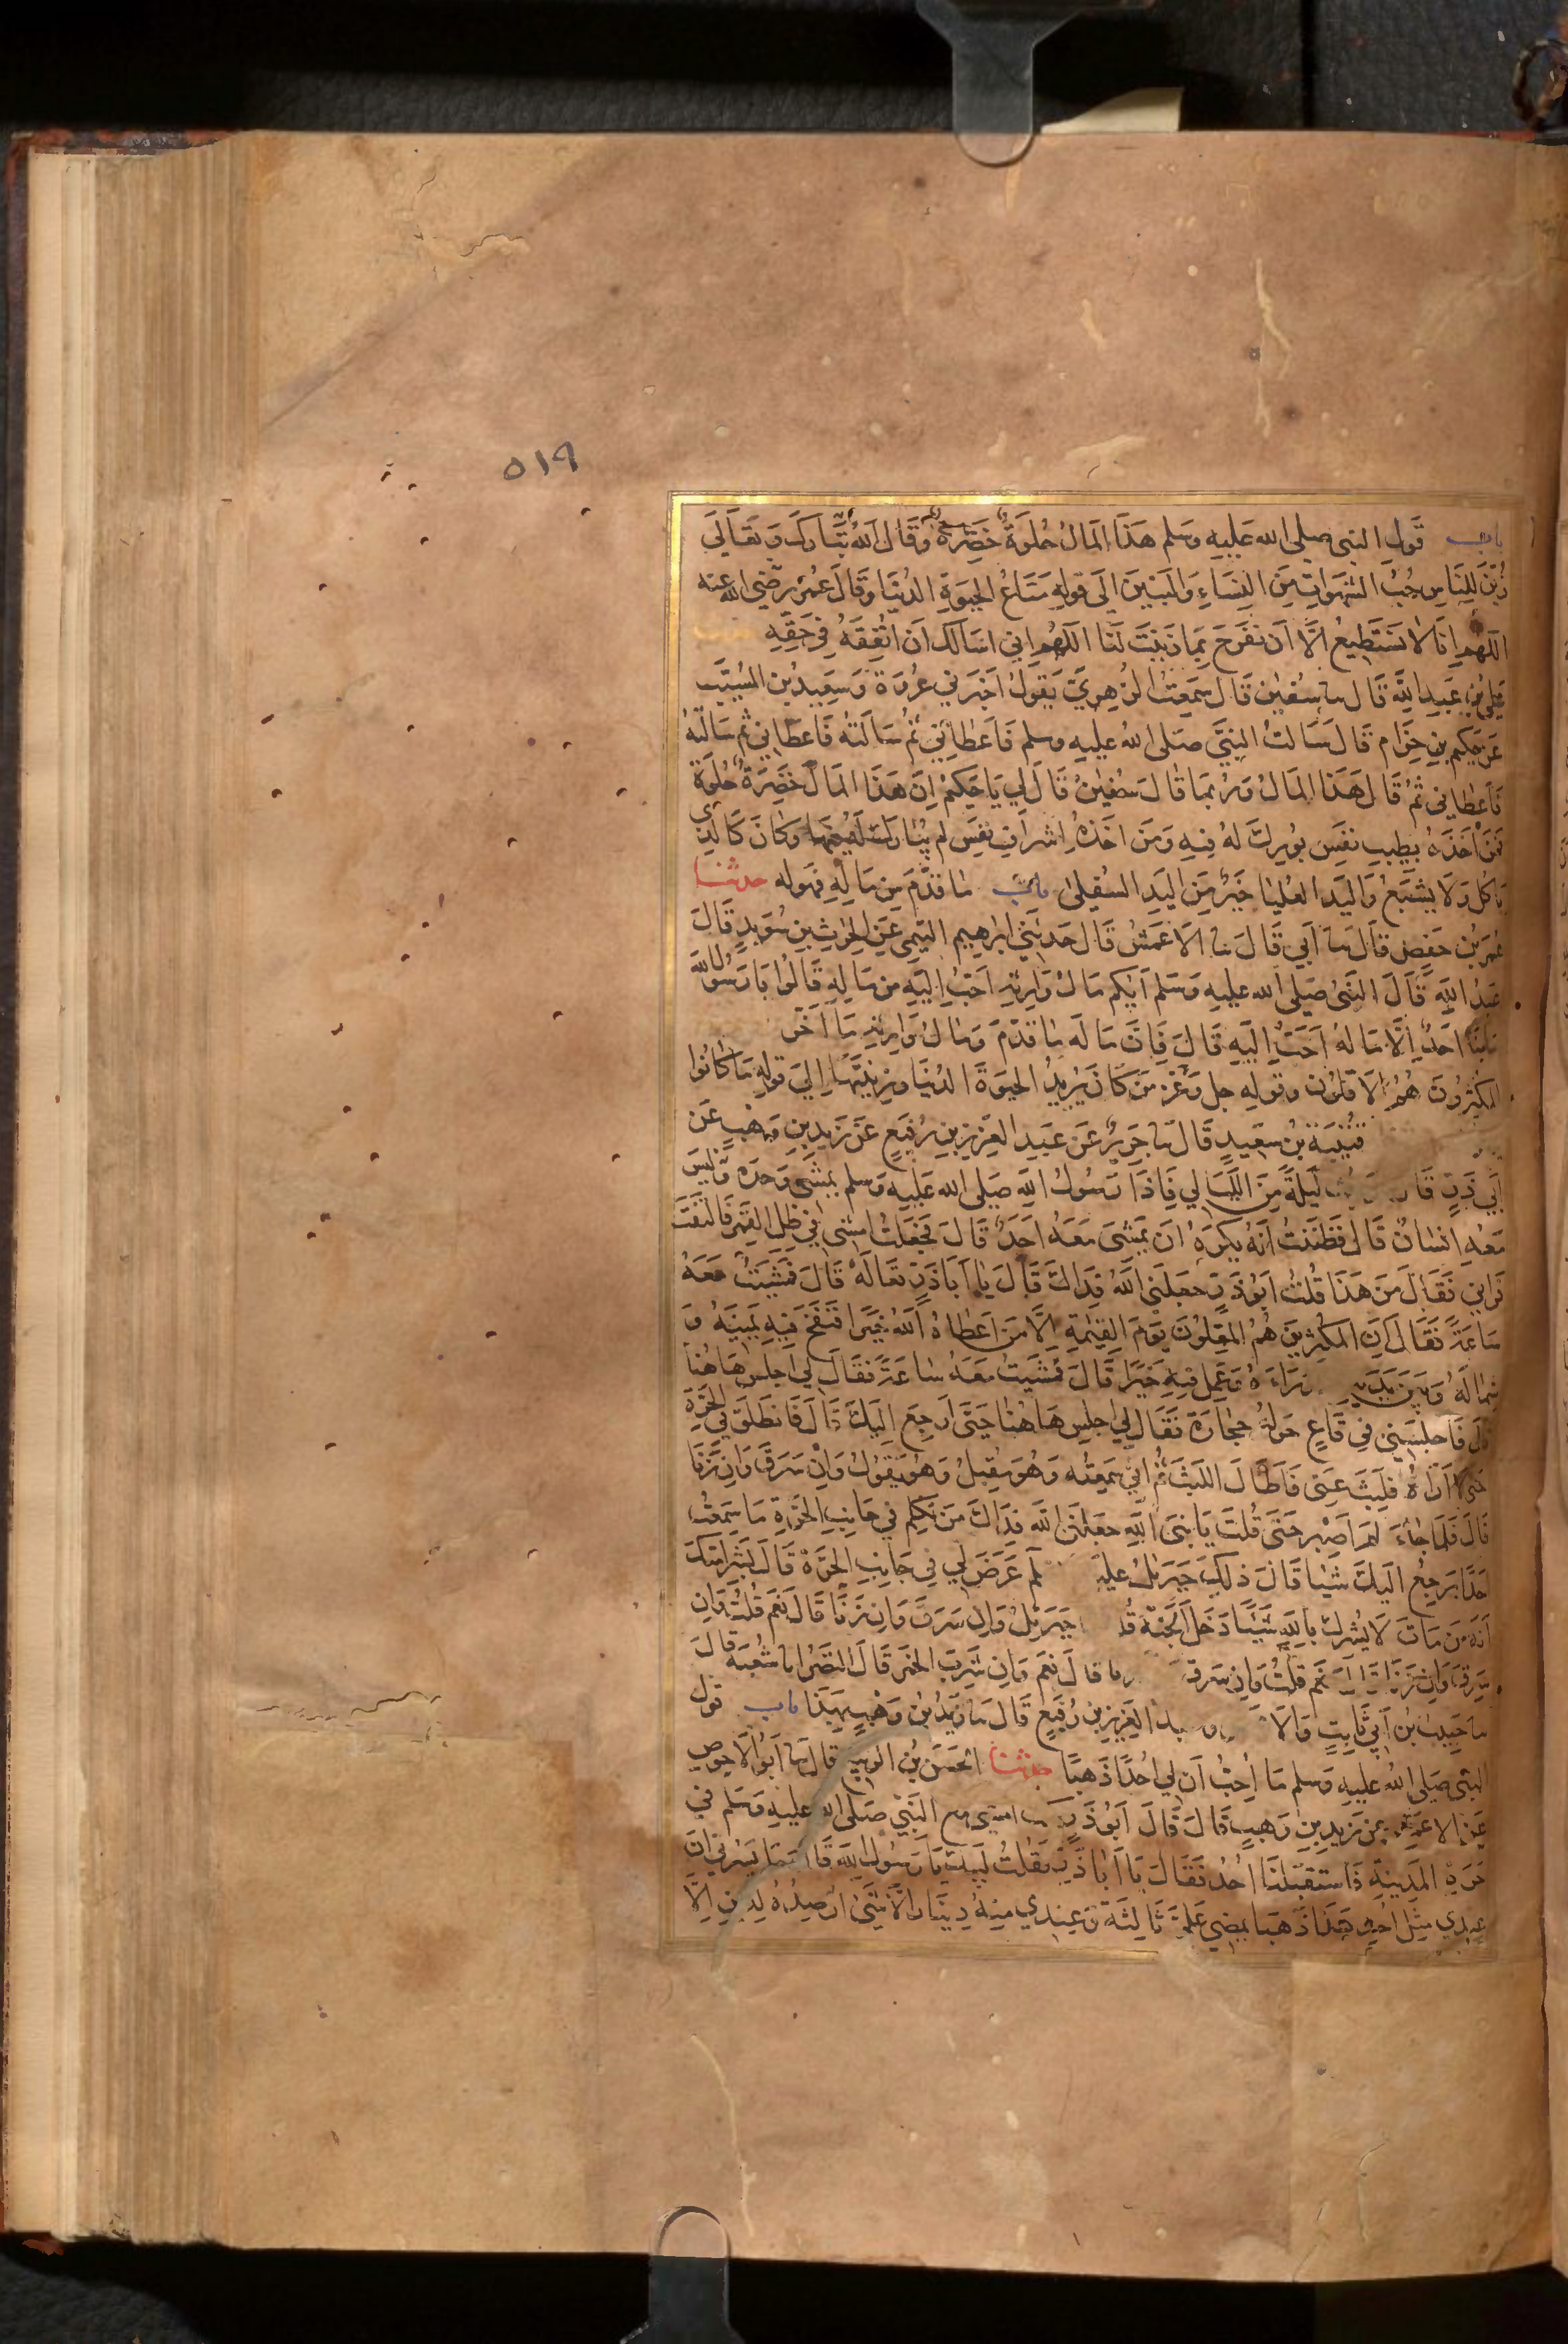 ٥١٩
باب قَول النبى صلى الله عَلَيهِ وَسَلم هَذَا المالُ حُلوَةٌ خَضِرَةٌ وَقَالَ اللهُ تَبَارَكَ وَتَعَالَى
زُيِّنَ لِلنَاسِ حُبُّ الشهَوَاتِ مِنَ النِسَاءِ وَالبَنِينَ الَى قولِهِ مَتَاعُ الحيوةِ الدُنيَا وَقَالَ عُمَرُ رضي الله عنه
اللهُمَ اِنَّا لا نَستَطِيعُ اِلَّا اَن نَفرَحَ بمَا زَيَّنتَ لَنَا اللهُمَ اِني اَسالُكَ اَن اُنفِقَهُ فِي حَقِّهِ
عَلِيُّ بنُ عَبدِ اللهِ قَالَ سا سُفيٰن قَالَ سَمِعتُ الزُهرِيَّ يَقولُ اَخبَرَني عُروَة وَسَعِيدُ بن المُسَيَّب
عَن حَكِيمِ بنِ حِزَام قَالَ سَالتُ النبِيَّ صَلى اللهُ عليهِ وسلم فَاَعطَانِي ثُمَّ سَالتُهُ فَاعطَانِي ثم سَالتُهُ
فَاَعطَانِي ثُمَّ قَالَ هَذَا المَالُ وَرُبمَا قَالَ سُفيٰنُ قَالَ لِي يَا حَكِيمُ اِنَّ هَذَا المَالَ خَضِرَةٌ حُلوَةٌ
فَمَن اَخَذَهُ بِطِيبِ نَفسٍ بُورِكَ لَهُ فِيهِ وَمَن اَخَذَهُ اِشرَافِ نَفسٍ لَم يُبَارَك لَهُ فيها وَكانَ كَالذِي
يَاكُلُ وَلَا يَشبَعُ وَاليَدُ العُليَا خَيرٌ مِنَ اليَدِ السُفلَى باب مَا قدَّمَ مِن مَالِهِ فهوله حدثنا
عُمَرُ بن حَفصٍ قَالَ سا اَبِي قَالَ سا الاَعمَشُ قَالَ حَدثَنِي ابرَهِيم التَيمِي عَنِ الحرثِ بنِ سُوَيدٍ قَالَ
عَبدُ اللهِ قَالَ النَبيُّ صَلى الله عَليهِ وَسَلم اَيّكم مَالُ وَارِثِهِ اَحَبُّ اِلَيهِ مِن مَالِهِ قَالُوا يَا رَسُولَ الله
مَا مِنَّا اَحَدٌ اِلَّا مَالهُ اَحَبُّ اِلَيهِ قَالَ فَاِنَّ مَالَه مَا قدَّمَ وَمَالُ وَارِثِهِ مَا اَخَّرَ
المكثرُونَ هُمُ الاَقَلّون وقوله جل وَعَز مَن كَانَ يُرِيدُ الحيوةَ الدُنيَا وَزِينَتهَا اِلىَ قولِهِ مَا كَانُوا
قُتَيبَة بن سعِيدٍ قَالَ سا جَرِيرٌ عَن عَبدِ العَزِيزِ بنِ رُفَيعٍ عَن زَيدِ بنِ وَهبٍ عَن
اَبِي ذَرٍّ قَا لَيلَةً مِنَ اللَّيَالي فَاِذَا رَسُولُ اللهِ صَلى الله عَليهِ وسلم يمشِي وَحدَه وَلَيسَ
مَعَهُ انسَانٌ قَالَ فَظَنَنتُ اَنهُ يكرَهُ اَن يَمشِيَ مَعَهُ اَحَدٌ قَالَ فجَعَلتُ اَمشِي فِي ظِلِّ القَمَرِ فَالتَفتَ
فَرَاني فَقَالَ مَن هَذَا قُلتُ ابُو ذَرٍّ جعَلَنِي اللهُ فِدَاكَ قَالَ يَا اَبَا ذَرٍّ تعَالَه قَالَ فَمشَيتُ مَعَهُ
سَاعَةً فَقَالَ اِنَّ المكثِرِينَ هُمُ المقِلّونَ يَومَ القِيٰمةِ اِلَّا مَن اَعطَاهُ اللهُ خَيرًا فَنَفَحَ فِيهِ يَمِينَهُ وَ
شِمَالَهُ وَبَينَ يَدَيهِ وَرَاءَهُ وَعَمِلَ فِيهِ خَيرًا قَالَ فَمشَيتُ مَعَهُ سَاعَةً فقَالَ لِي اجلِس هَاهُنَا
قال فَاجلَسَنِي فِي قَاعٍ حَولهُ حِجَارَة فَقَالَ لِي اجلِس هَاهُنَا حَتَّى اَرجِعَ اِلَيكَ قَالَ فَانطَلَقَ فِي الحَرَّةِ
حَتى لا اَرَاهُ فَلَبِثَ عَنِّي فَاَطَالَ اللبثَ ثُمَّ اِني سَمِعتُه وَهُوَ مُقبِلٌ وَهُوَ يَقُولُ وَاِن سَرَقَ وَاِن زَنَا
قَالَ فَلَمَا جَاءَ لَم اَصبِر حَتَّى قُلتُ يَا نَبِيَ اللهِ جعَلَنِي الله فِدَاكَ مَن تكلّم فِي جَانِبِ الحَرَّةِ مَا سَمِعتُ
اَحَدًا يَرجِعُ اِلَيكَ شَيئا قَالَ ذلِكَ جِبرَئيلُ عليه لَم عَرَضَ لِي فِي جَانِبِ الحَرَّة قَالَ بَشِّر اُمتَكَ
اَنهُ مَن مَاتَ لَا يُشرِكُ بِاللهِ شَيئًا دَخَلَ الجَنّة قُلـ جِبرَئيلُ وَاِن سَرَقَ وَاِن زَنَا قَالَ نَعَم قُلتُ وَاِن
سَرَقَ وَاِن زَنَا قَالَ نَعَم قُلتُ وَاِن سَرق قَالَ نعَم وَاِن شَرِبَ الخمرَ قَالَ النضَرُ انا شُعبَة قَالَ
سا حَبِيبُ بن اَبِي ثَابِتٍ وَالا العَزِيزِ بن رُفَيعٍ قَالَ سا زَيدُ بنُ وَهبٍ بهَذَا باب قول
النبي صَلى اللهُ عليهِ وَسلم مَا اُحِبُّ اَن لِي اُحُدًا ذَهبًا حدثنا الحَسَنُ بن الربيع قَالَ سا اَبُو الاَحوصِ
عَنِ الاعمَش عن زَيدِ بنِ وَهبٍ قَالَ قَالَ اَبُو ذَرٍّ امشِي مع النَبِيِّ صَلى الله عليهِ وَسَلم في
حَرةِ المَدِينَةِ فَاستقبَلَنَا اُحُدٌ فَقَالَ يَا اَبَا ذَرٍّ فقلتُ لَبّيكَ يَا رَسُولَ اللهِ قَالَ مَا يَسُرني اَن
عِندِي مِثلَ اُحُدٍ هَذَا ذَهبَا يمضِي عَلَيَّ ثَالِثَة وَعِندِي مِنهُ دِينَار اِلَّا شَيئ اُرصِدُهُ لِدَينٍ اِلَّا